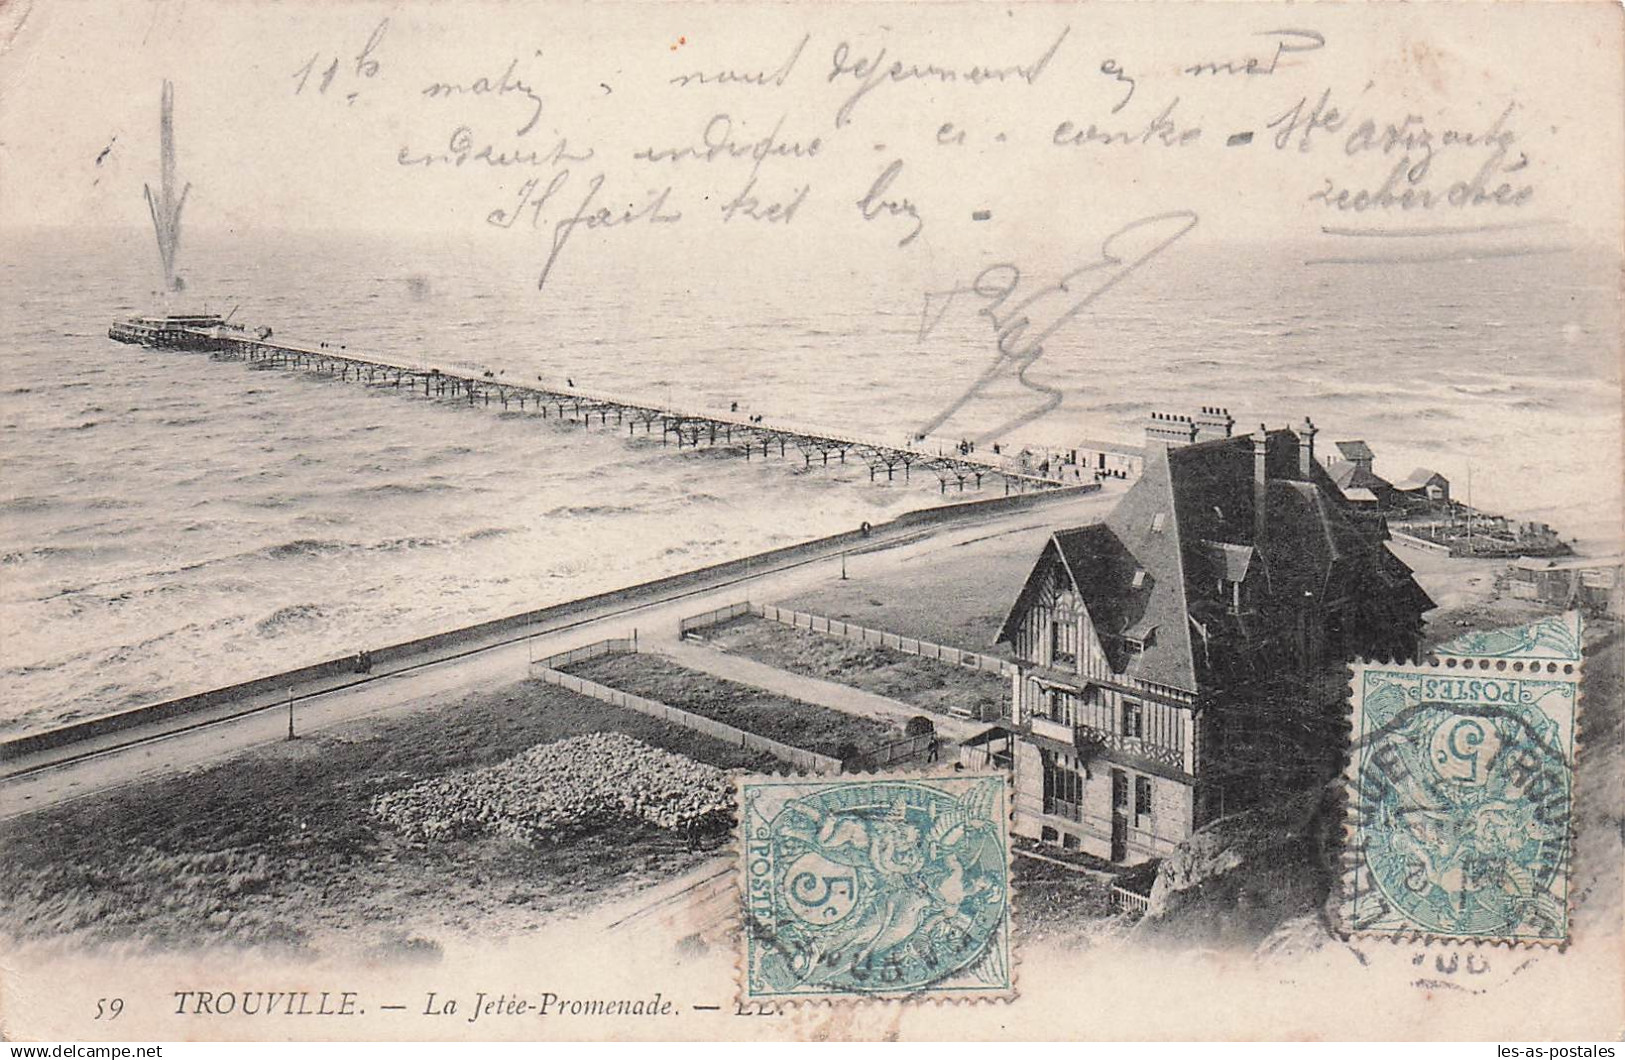 11h matin, nous déjeunons en mer
endroit indiqué - ci - contre - Sté
recherchée
Il fait très bon -
POSTES
5c
POSTES
5c
TROUVILLE
59 TROUVILLE. — La Jetée-Promenade. — LL.
delcampe.net
les-as-postales